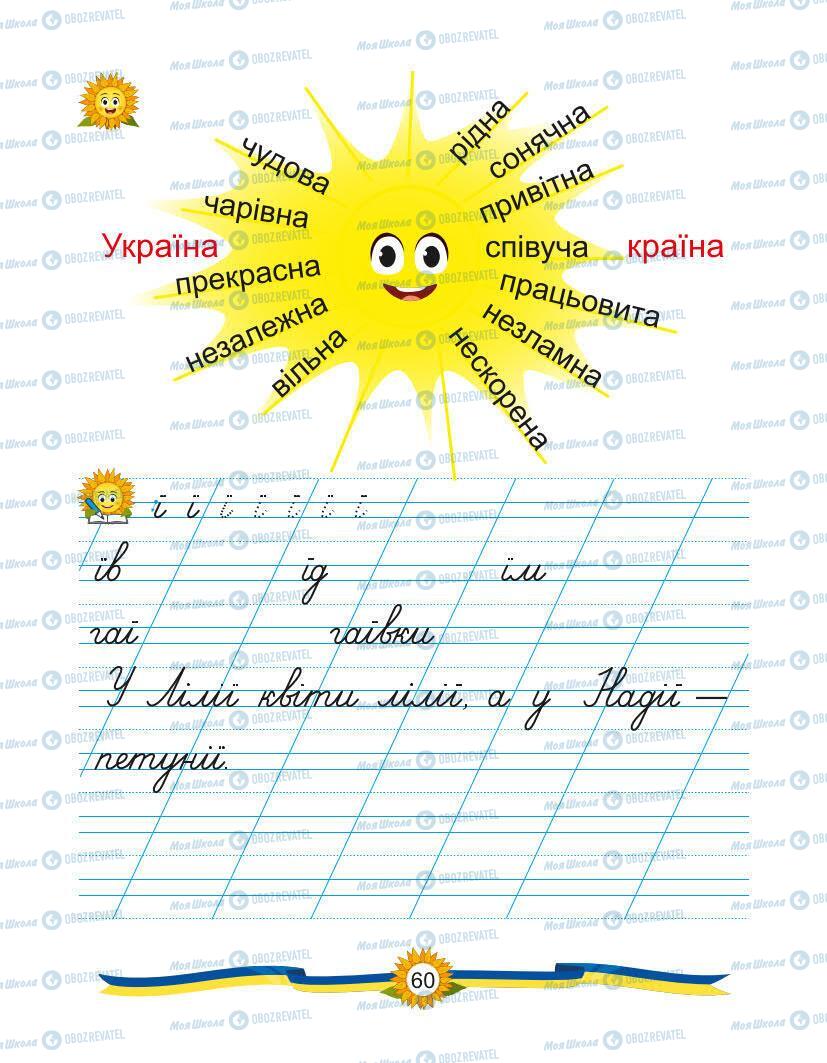 чудова
чарівна
Україна
прекрасна
незалежна
вільна
рідна
сонячна
привітна
співуча країна
працьовита
незламна
нескорена
ї ї ї ї ї ї ї
їв їд їм
гаї гаївки
У Лілії квіти лілії, а у Надії —
петунії.
60
МОЯ ШКОЛА OBOZREVATEL